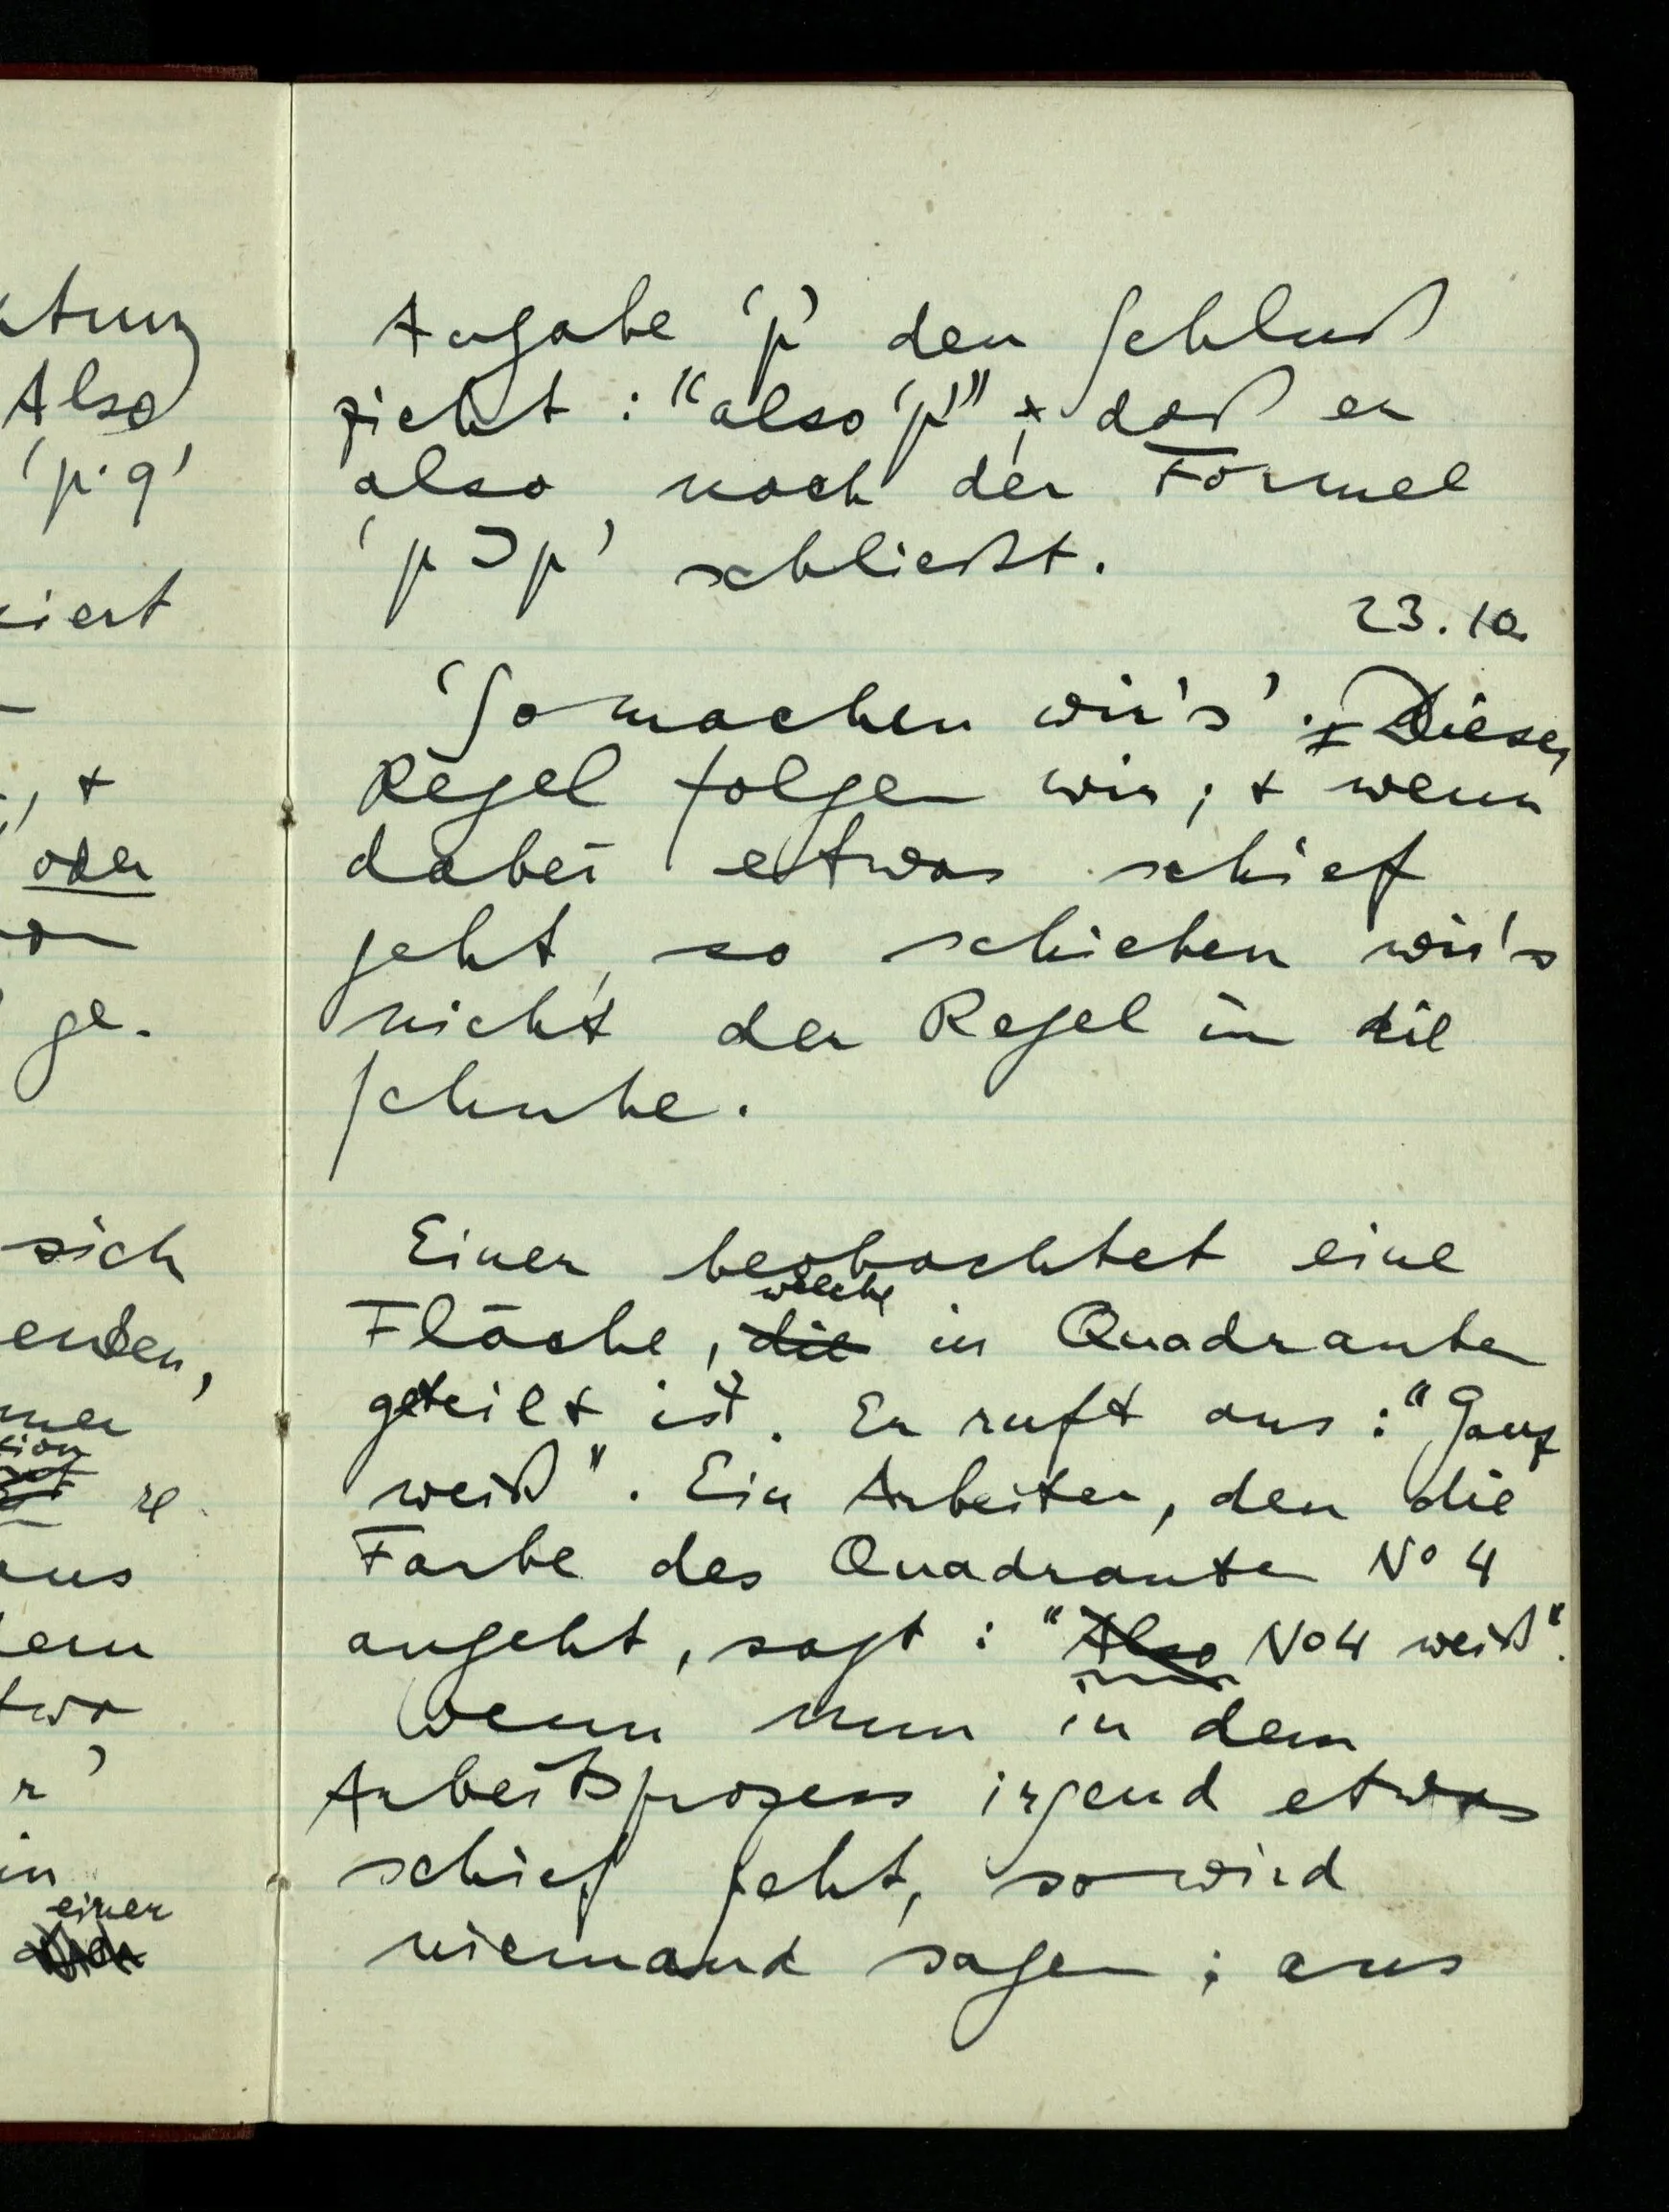 ktung
Also
'p·q'
ziert
., +
oder
ge-
sich
enden,
mer
tion
re-
aus
dem
twa
r'
in
einer
Angabe 'p' den Schluß
zieht: "also 'p'" + daß er
also nach der Formel
'p ⊃ p' schließt.
23.10.
'So machen wir's'. Dieser
Regel folgen wir; + wenn
dabei etwas schief
geht, so schieben wir's
nicht der Regel in die
Schuhe.
Einer beobachtet eine
welche
Fläche, die in Quadranten
geteilt ist. Er ruft aus: "Ganz
weiß". Ein Arbeiter, den die
Farbe des Quadranten No 4
angeht, sagt: "Also No 4 weiß".
Wenn nun in dem
Arbeitsprozess irgend etwas
schief geht, so wird
niemand sagen: aus